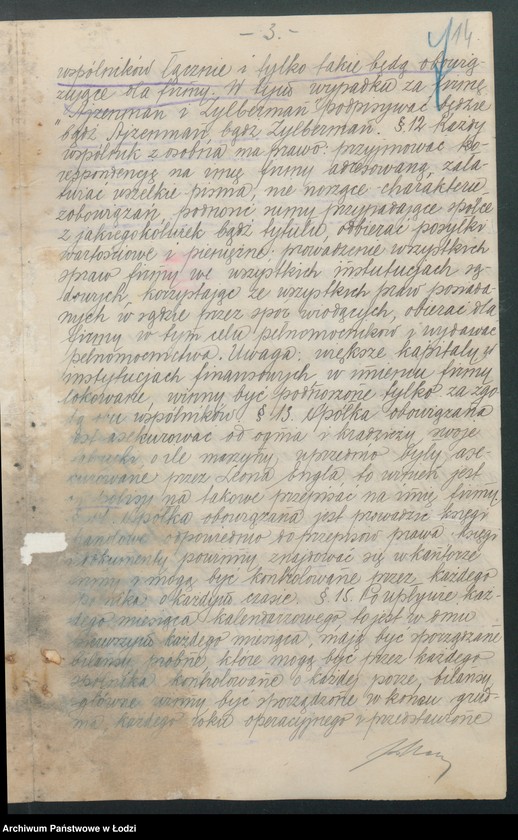 - 3. -
14.
wspólników łącznie i tylko takie będą obowią-
zujące dla firmy. W tym wypadku za firmę
"Ajzenman i Zylberman" podpisywać będzie
bądź Ajzenman bądź Zylberman. § 12 Każdy
wspólnik z osobna ma prawo: przyjmować ko-
respondencję na imię firmy adresowaną, zała-
twiać wszelkie pisma, nie noszące charakteru
zobowiązań, podnosić sumy przypadające spółce
z jakiegokolwiek bądź tytułu, odbierać posyłki
wartościowe i pieniężne: prowadzenie wszystkich
spraw firmy we wszystkich instytucjach są-
dowych, korzystając ze wszystkich praw posiada-
nych w sądzie przez spór wiodących, obierać dla
firmy w tym celu pełnomocników i wydawać
pełnomocnictwa. Uwaga: większe kapitały w
instytucjach finansowych w imieniu firmy
lokowane, winny być podnoszone tylko za zgo-
dą wspólników § 13. Spółka obowiązana
jest asekurować od ognia i kradzieży swoje
o ile maszyny uprzednio były ase-
kurowane przez Leona Engla to winien jest
na takowe przepisać na imię firmy
Spółka obowiązana jest prowadzić księgi
handlowe odpowiednio do przepisów prawa, księgi
i dokumenty powinny znajdować się w kantorze
firmy i mogą być kontrolowane przez każdego
wspólnika o każdym czasie. § 15. Po upływie każ-
dego miesiąca kalendarzowego, to jest w dniu
pierwszym każdego miesiąca, mają być sporządzane
bilanse próbne, które mogą być przez każdego
wspólnika kontrolowane o każdej porze, bilansy
główne winny być sporządzone w końcu grud-
nia, każdego roku operacyjnego i przedstawione
Archiwum Państwowe w Łodzi